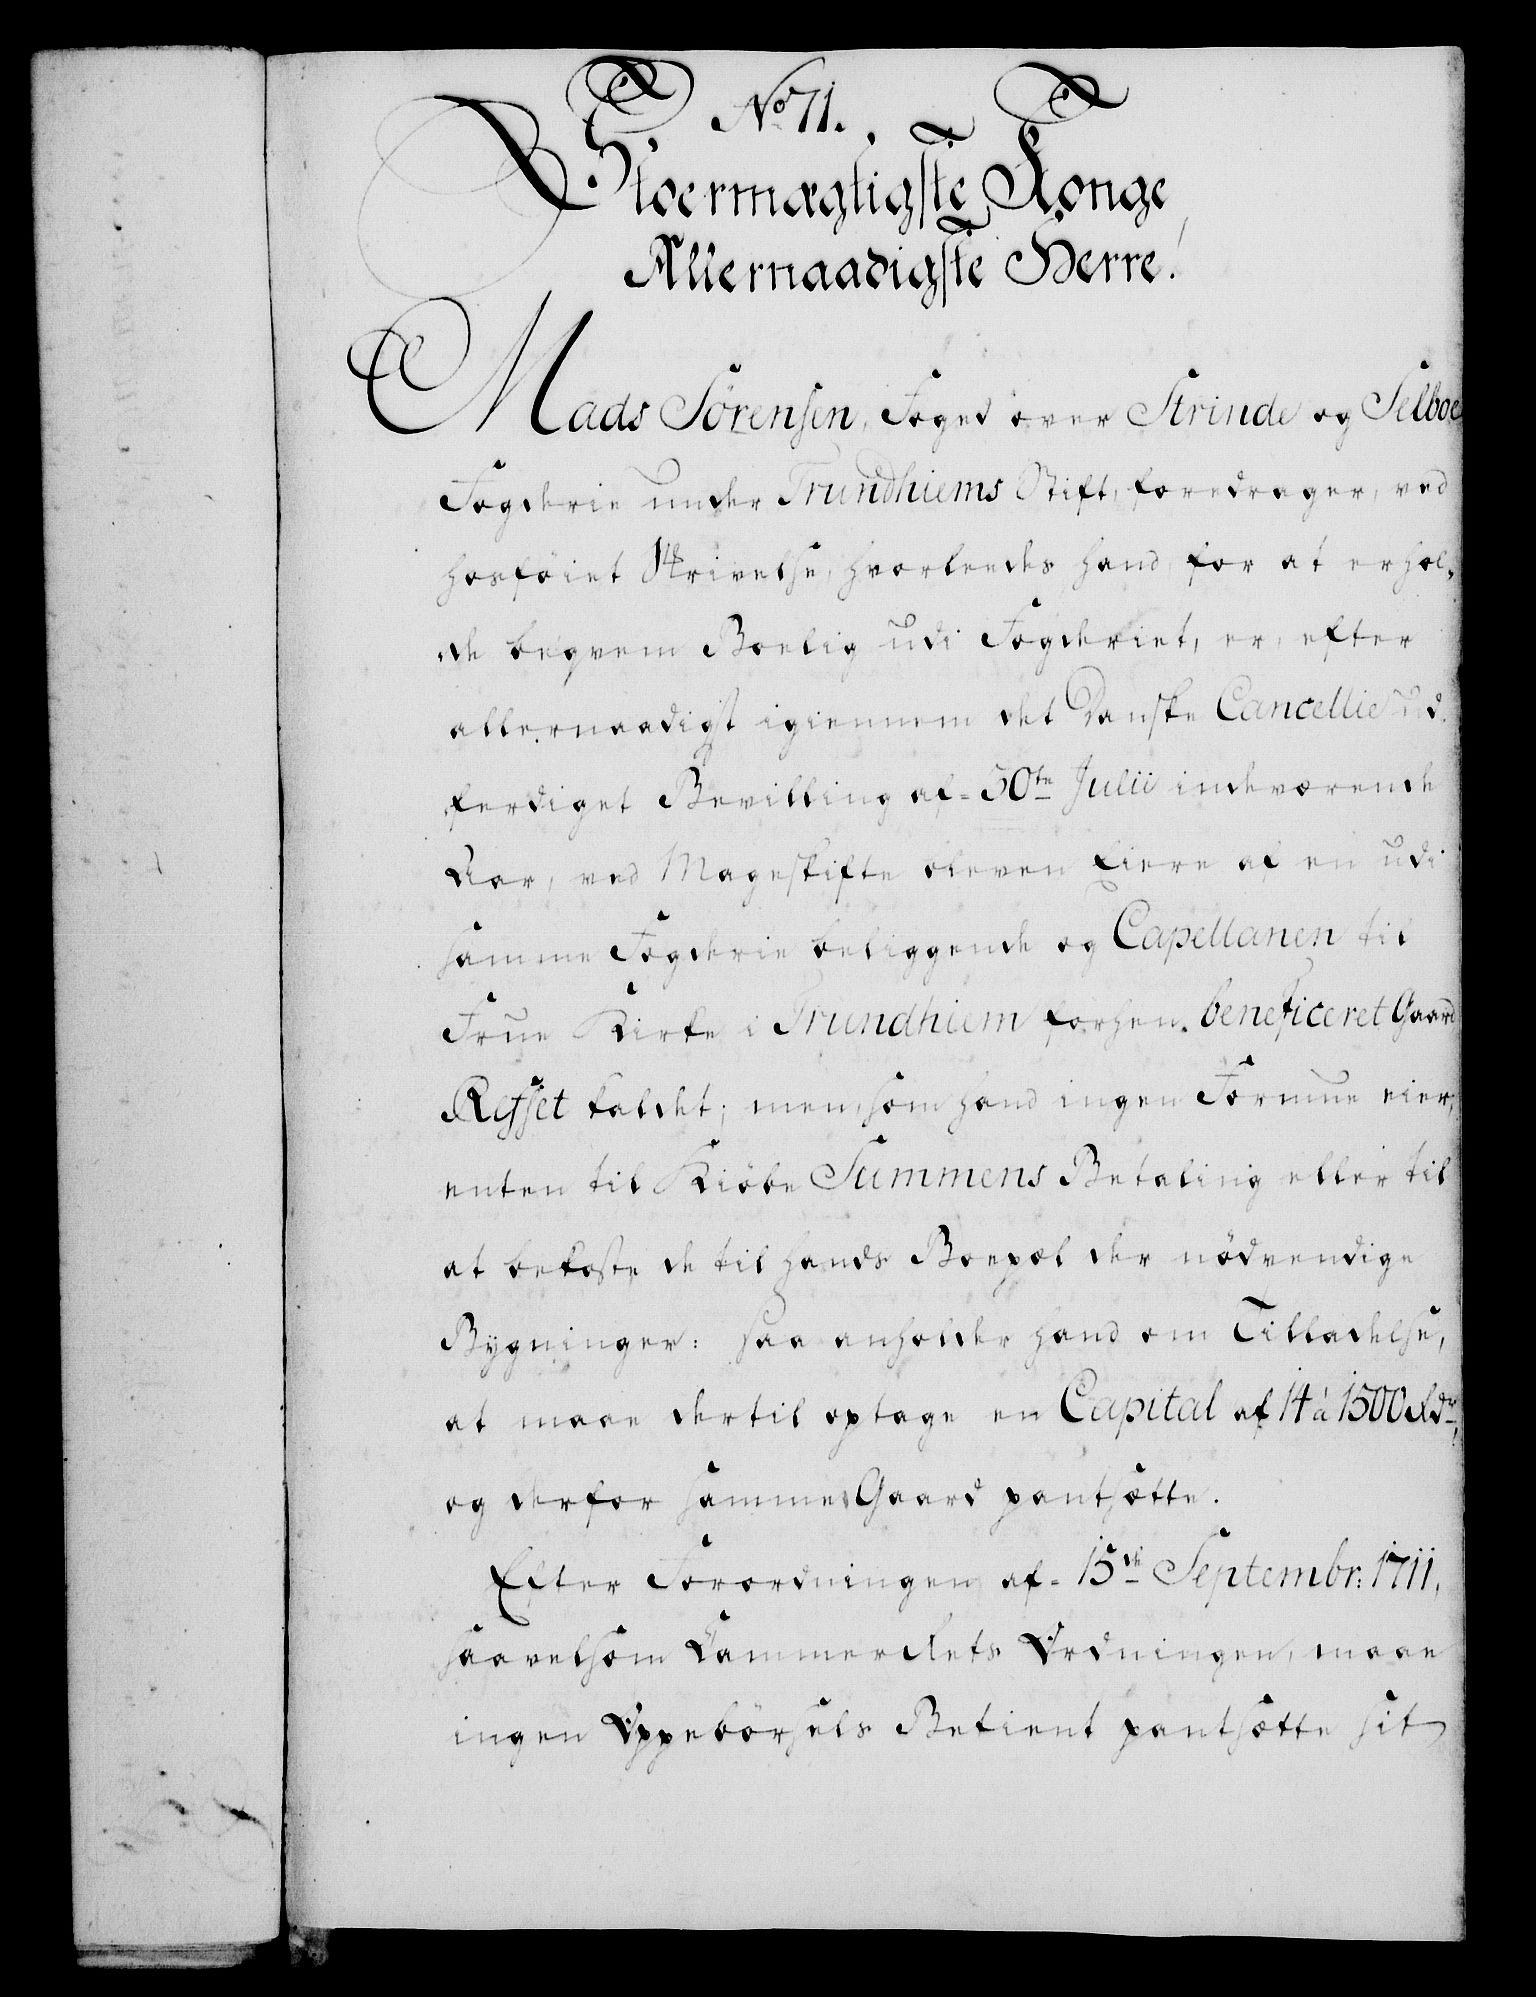 No 71.
Stormægtigste Konge
Allernaadigste Herre!
Mads Sörensen, Foged over Strinde og Selboe
Fogderie under Trundhiems Stift, foredrager, ved
hosföiet Skrivelse, hvorledes hand, for at erhol-
de beqvem Boelig udi Fogderiet, er, efter
allernaadigst igiennem det Danske Cancellie ud-
ferdiget Bevilling af 30te Julii indeværende
Aar, ved Mageskifte bleven Eiere af en udi
samme Fogderie beliggende og Capellanen til
Frue Kirke i Trundhiem forhen beneficeret Gaard
Refset kaldet; men, som hand ingen Formue eier,
enten til Kiöbe Summens Betaling eller til
at bekoste de til hands Boepæl der nödvendige
Bygninger: saa anholder hand om Tilladelse,
at maae dertil optage en Capital af 14 à 1500 Rdr,
og derfor samme Gaard pantsætte.
Efter Forordningen af 15de Septembr: 1711,
saavelsom Cammer Rets Ordningen, maae
ingen Oppebörsels Betient pantsætte sit